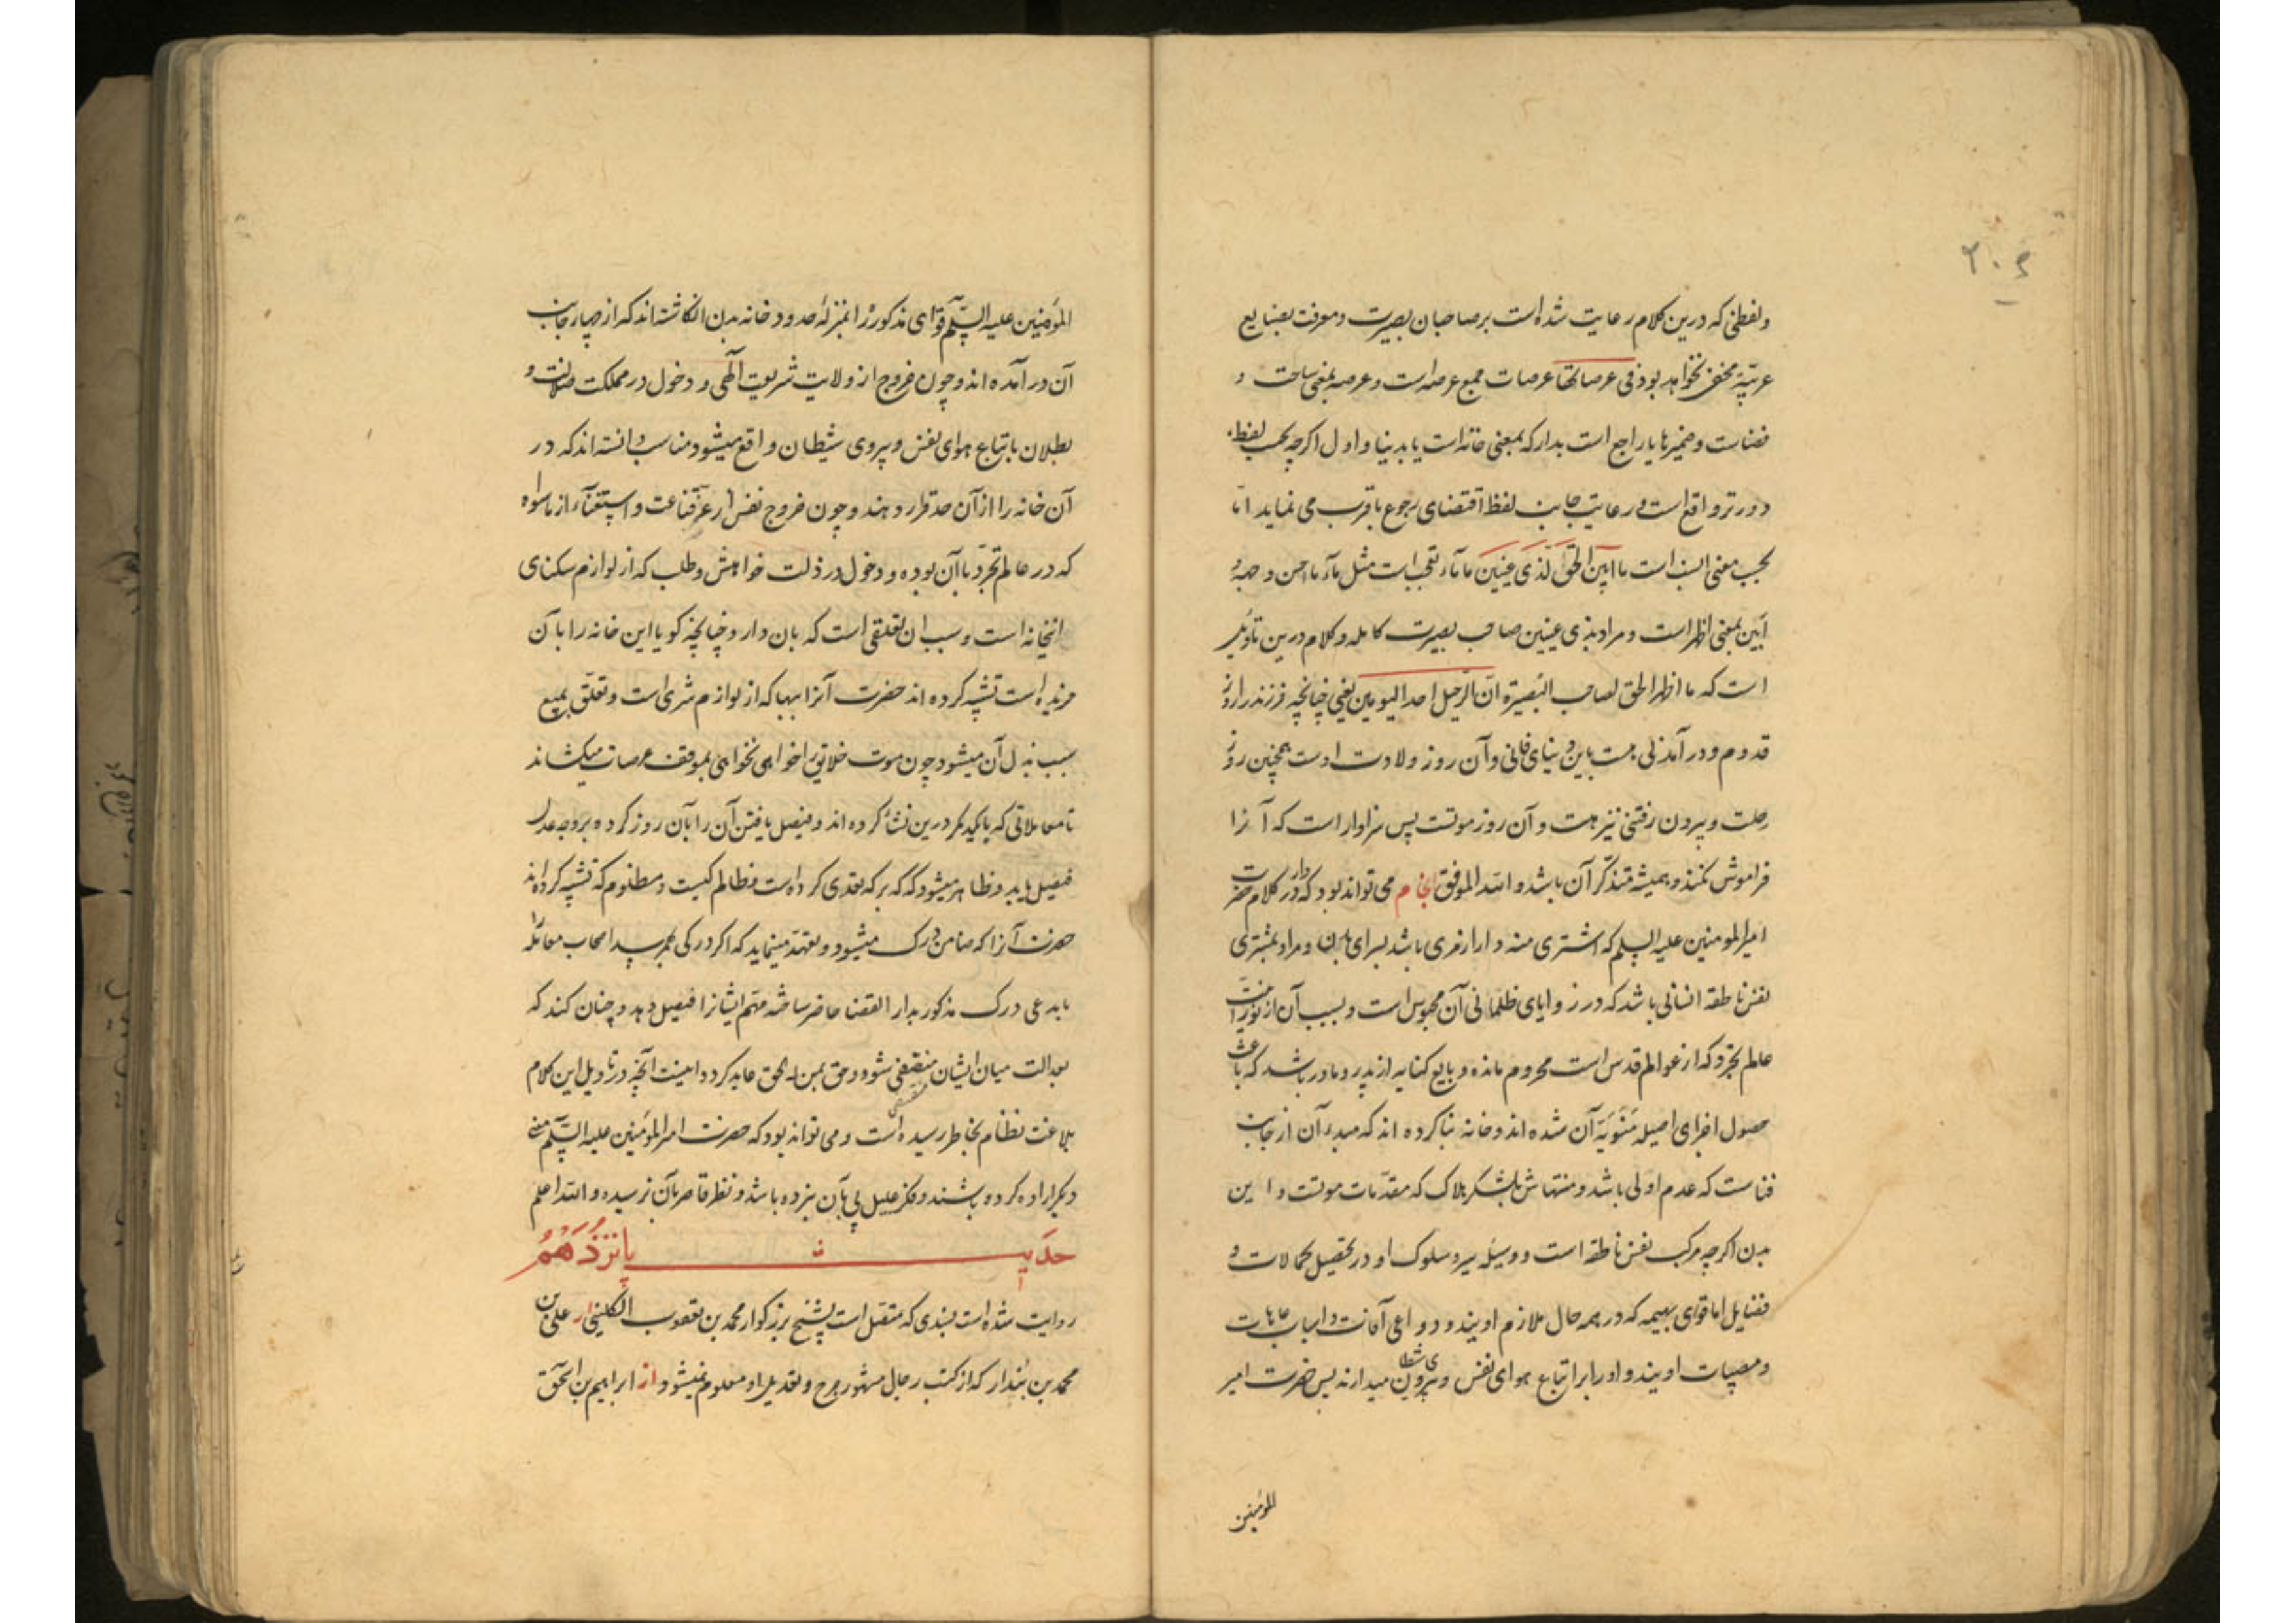 ۲۰۶
ولفظی که درین کلام رعایت شده است بر صاحبان بصیرت و معرفت بصنایع
عربیّة مخفی نخواهد بود فی عرصاتها عرصات جمع عرصه است و عرصه بمعنی ساحت و
فضاست و ضمیر ها یا راجع است بدار که بمعنی خانه است یا بدنیا و اول اگرچه بحسب لفظ
دورتر واقع است و رعایت جانب لفظ اقتضای رجوع باقرب می نماید امّا
بحسب معنی انسب است ما ابین الحقّ لذی عینین ما ماء تعجب است مثل ماء ما احسن و جمله
ابین بمعنی اظهر است و مراد بذی عینین صاحب بصیرت کامله و کلام درین تاویل
است که ما اظهر الحق لصاحب البصیرة انّ الرحیل احد الیومین یعنی چنانچه فرزند را روز
قدوم و درآمدنی هست باین دنیای فانی و آن روز ولادت اوست همچنین روز
رحلت و بیرون رفتنی نیز هست و آن روز موتست پس سزاوار است که آنرا
فراموش نکنند و همیشه متذکّر آن باشد و الله الموفق انجام می تواند بود که دار در کلام حضرت
امیر المومنین علیه السلم که اشتری منه دارا رمزی باشد بسرای بدن و مراد بمشتری
نفس ناطقه انسانی باشد که در زوایای ظلمانی آن محبوس است و بسبب آن از نورانیت
عالم تجرد که از عوالم قدس است محروم مانده و بایع کنایه از پدر و مادر باشد که باعث
حصول اجزای اصیله منویّه آن شده اند و خانه بنا کرده اند که مبدء آن از جانب
فناست که عدم اولی باشد و منتهاش بلشکر هلاک که مقدّمات موتست و این
بدن اگرچه مرکب نفس ناطقه است و وسیله سیر و سلوک او در تحصیل کمالات و
فضایل اما قوای بهیمه که در همه حال ملازم اویند و دواعی آفات و اسباب عاهات
و مصیبات اویند و او را بر اتباع هوای نفس و پیروی شیطان میدارند پس حضرت امیر
المومنین
المؤمنین علیه السّلم قوای مذکور را بمنزله حدود خانه بدن انگاشته اند که از چهار جانب
آن درآمده اند و چون خروج از ولایت شریعت الهی و دخول در مملکت ضلالت و
بطلان باتباع هوای نفس و پیروی شیطان واقع میشود مناسب دانسته اند که در
آن خانه را از آن حد قرار دهند و چون خروج نفس از عزّ قناعت و استغناء از ماسواه
که در عالم تجرّد با آن بوده و دخول در ذلت خواهش و طلب که از لوازم سکنای
اینخانه است و سبب ان تعلقی است که بان دارد چنانچه گویا این خانه را بآن
خریده است تشبیه کرده اند حضرت آنرا ببها که از لوازم شری است و تعلّق بمبیع
سبب بذل آن میشود چون موت خلایق را خواهی نخواهی بموقف عرصات میکشاند
تا معاملاتی که با یکدیگر درین نشأ کرده اند و فیصل یافتن آن را بآن روز کرده بر وجه عدل
فیصل یابد و ظاهر میشود که که بر که تعدی کرده است و ظالم کیست و مظلوم که تشبیه کرده اند
حضرت آنرا که ضامن درک میشود و تعهّد مینماید که اگر درکی بهم رسد اصحاب معامله را
با مدعی درک مذکور بدار القضا حاضر ساخته مهّم ایشانرا فیصل دهد و چنان کند که
بعدالت میان ایشان منقضی شود و حق بمن له الحق عاید گردد اینست آنچه در تاویل این کلام
بلاغت نظام بخاطر رسیده است و می تواند بود که حضرت امیر المؤمنین علیه السّلم معنی
دیگر اراده کرده باشند و فکر علیل پی بآن نبرده باشد و نظر قاصر بآن نرسیده و الله اعلم
حدیث پانزدهم
روایت شده است بسندی که متصل است بشیخ بزرگوار محمد بن یعقوب الکلینی از علی بن
محمد بن بندار که از کتب رجال مشهور جرح و تعدیل او معلوم نمیشود از ابراهیم بن اسحق